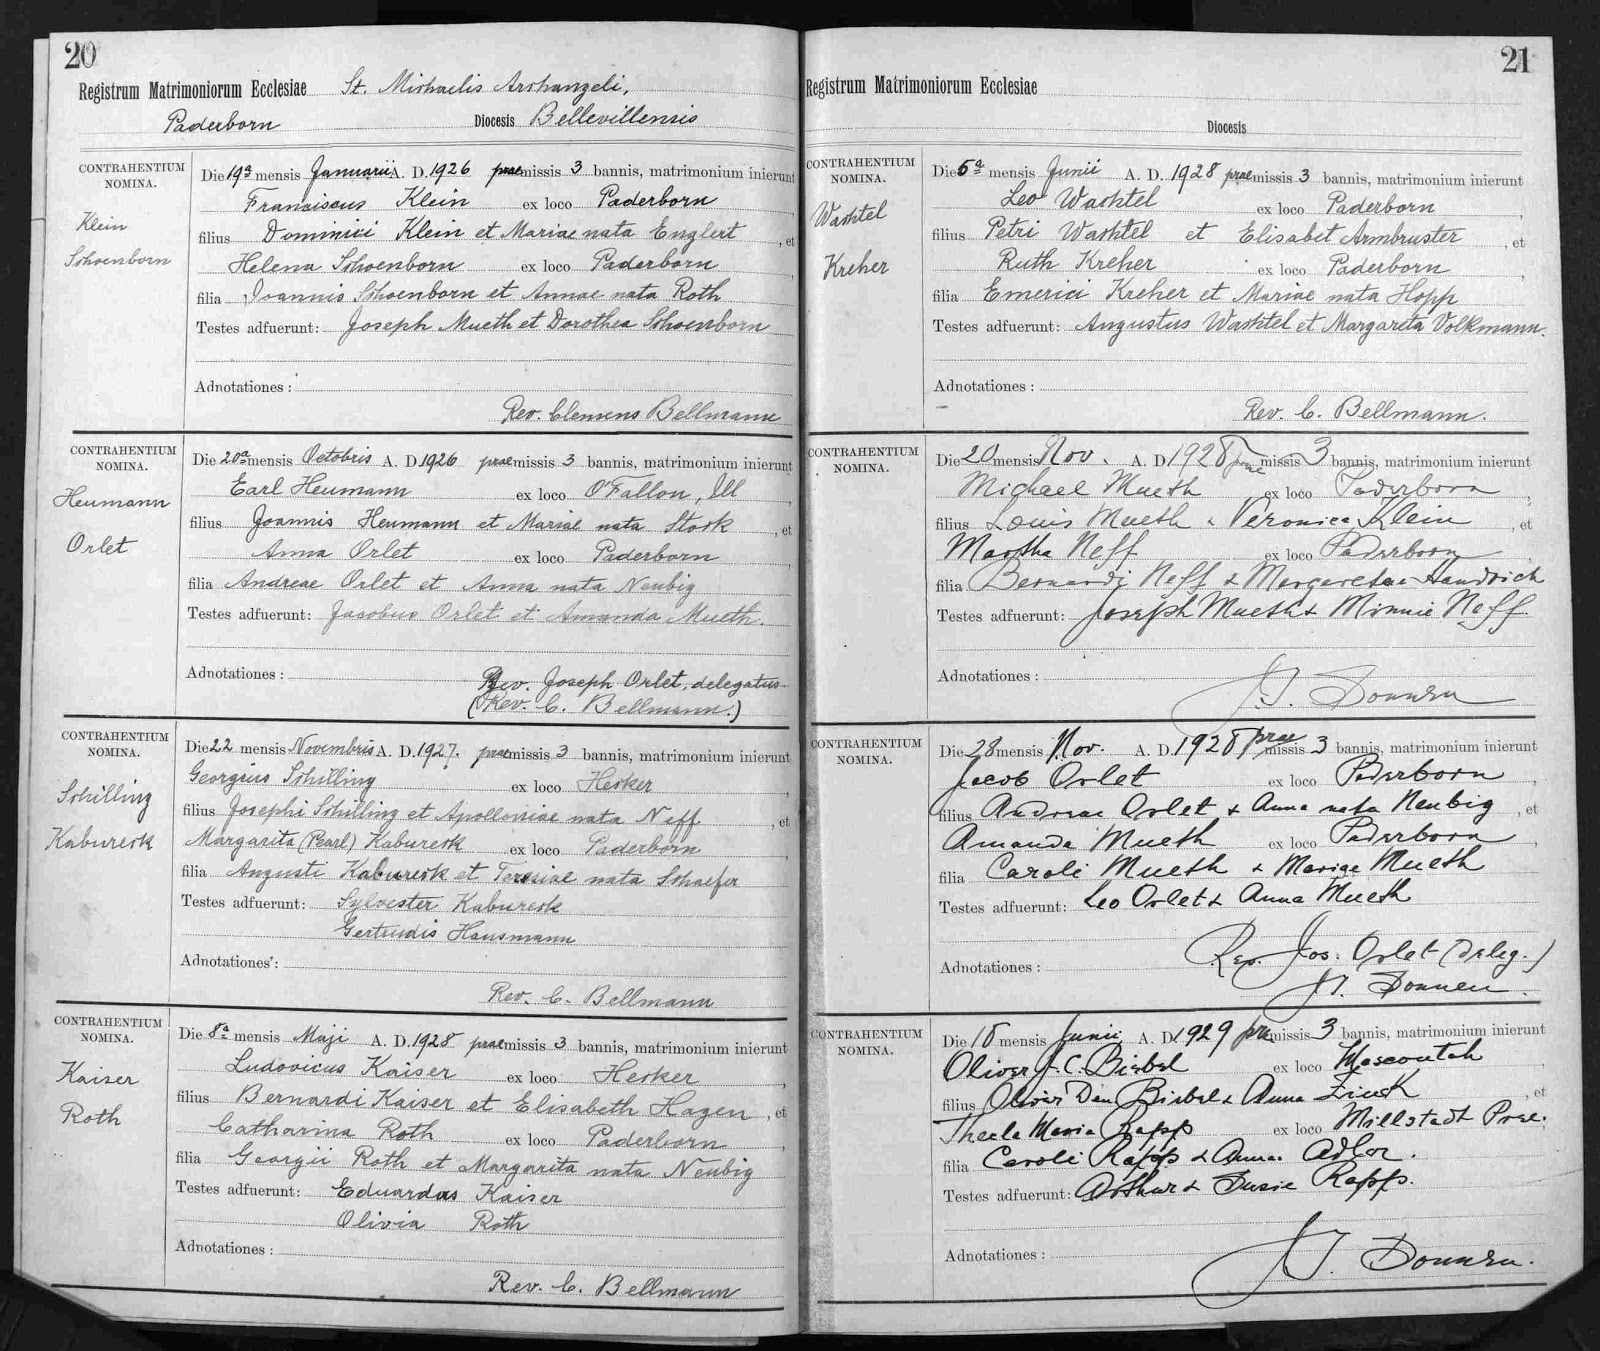 20
Registrum Matrimoniorum Ecclesiae St. Michaelis Archangeli,
Paderborn Diocesis Bellevillensis
CONTRAHENTIUM NOMINA.
Klein
Schoenborn
Die 19a mensis Januarii A. D. 1926 praemissis 3 bannis, matrimonium inierunt
Franciscus Klein ex loco Paderborn
filius Dominici Klein et Mariae nata Englert, et
Helena Schoenborn ex loco Paderborn
filia Joannis Schoenborn et Annae nata Roth
Testes adfuerunt: Joseph Mueth et Dorothea Schoenborn
Adnotationes:
Rev. Clemens Bellmann
CONTRAHENTIUM NOMINA.
Heumann
Orlet
Die 20a mensis Octobris A. D. 1926 praemissis 3 bannis, matrimonium inierunt
Earl Heumann ex loco O'Fallon, Ill
filius Joannis Heumann et Mariae nata Stock, et
Anna Orlet ex loco Paderborn
filia Andreae Orlet et Anna nata Neubig
Testes adfuerunt: Jacobus Orlet et Amanda Mueth.
Adnotationes:
Rev. Joseph Orlet, delegatus
(Rev. C. Bellmann.)
CONTRAHENTIUM NOMINA.
Schilling
Kabureck
Die 22 mensis Novembris A. D. 1927. praemissis 3 bannis, matrimonium inierunt
Georgius Schilling ex loco Hecker
filius Josephi Schilling et Apolloniae nata Neff, et
Margarita (Pearl) Kabureck ex loco Paderborn
filia Augusti Kabureck et Teresiae nata Schaefer
Testes adfuerunt: Sylvester Kabureck
Gertrudis Hausmann
Adnotationes:
Rev. C. Bellmann
CONTRAHENTIUM NOMINA.
Kaiser
Roth
Die 8a mensis Maji A. D. 1928 praemissis 3 bannis, matrimonium inierunt
Ludovicus Kaiser ex loco Hecker
filius Bernardi Kaiser et Elisabeth Hagen, et
Catharina Roth ex loco Paderborn
filia Georgii Roth et Margarita nata Neubig
Testes adfuerunt: Eduardus Kaiser
Olivia Roth
Adnotationes:
Rev. C. Bellmann
21
Registrum Matrimoniorum Ecclesiae
Diocesis
CONTRAHENTIUM NOMINA.
Wachtel
Kreher
Die 5a mensis Junii A. D. 1928 praemissis 3 bannis, matrimonium inierunt
Leo Wachtel ex loco Paderborn
filius Petri Wachtel et Elisabet Armbruster, et
Ruth Kreher ex loco Paderborn
filia Emerici Kreher et Mariae nata Hopp
Testes adfuerunt: Augustus Wachtel et Margareta Volkmann.
Adnotationes:
Rev. C. Bellmann.
CONTRAHENTIUM NOMINA.
Die 20 mensis Nov. A. D. 1928 praemissis 3 bannis, matrimonium inierunt
Michael Mueth ex loco Paderborn
filius Louis Mueth & Veronica Klein, et
Martha Neff ex loco Paderborn
filia Bernardi Neff & Margaretae
Testes adfuerunt: Joseph Mueth & Minnie Neff.
Adnotationes:
J. T. Donnen
CONTRAHENTIUM NOMINA.
Die 28 mensis Nov. A. D. 1928 praemissis 3 bannis, matrimonium inierunt
Jacob Orlet ex loco Paderborn
filius Andreae Orlet & Anna nata Neubig, et
Amanda Mueth ex loco Paderborn
filia Caroli Mueth & Mariae Mueth
Testes adfuerunt: Leo Orlet & Anna Mueth
Rev. Jos. Orlet (deleg.)
Adnotationes:
J. T. Donnen.
CONTRAHENTIUM NOMINA.
Die 18 mensis Junii A. D. 1929 praemissis 3 bannis, matrimonium inierunt
Oliver J. C. Biebel ex loco Mascoutah
filius Oliver Dan Biebel & Anna, et
Thecla Maria Rapp ex loco Millstadt Prae.
filia Caroli Rapp & Anna Adler.
Testes adfuerunt: Arthur & Susie Rapp.
Adnotationes:
J. T. Donnen.